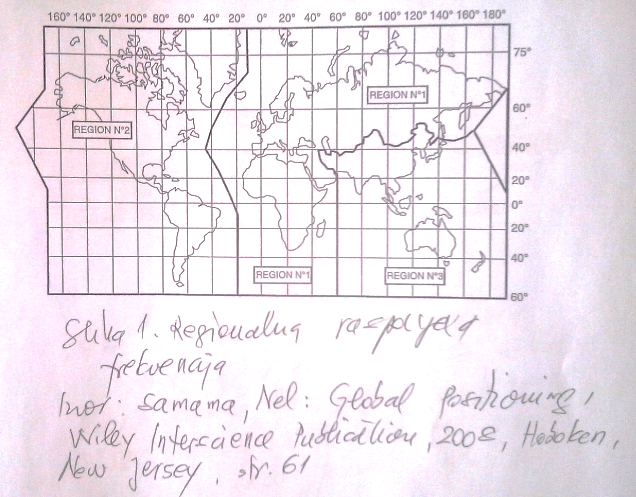 160° 140° 120° 100° 80° 60° 40° 20° 0° 20° 40° 60° 80° 100° 120° 140° 160° 180°
75°
REGION N°1
60°
REGION N°2
40°
20°
0°
20°
REGION N°1 REGION N°3
40°
60°
Slika 1. Regionalna raspodjela
frekvencija
Izvor: Samama, Nel: Global Positioning,
Wiley Interscience Publication, 2008, Hoboken,
New Jersey, str. 61